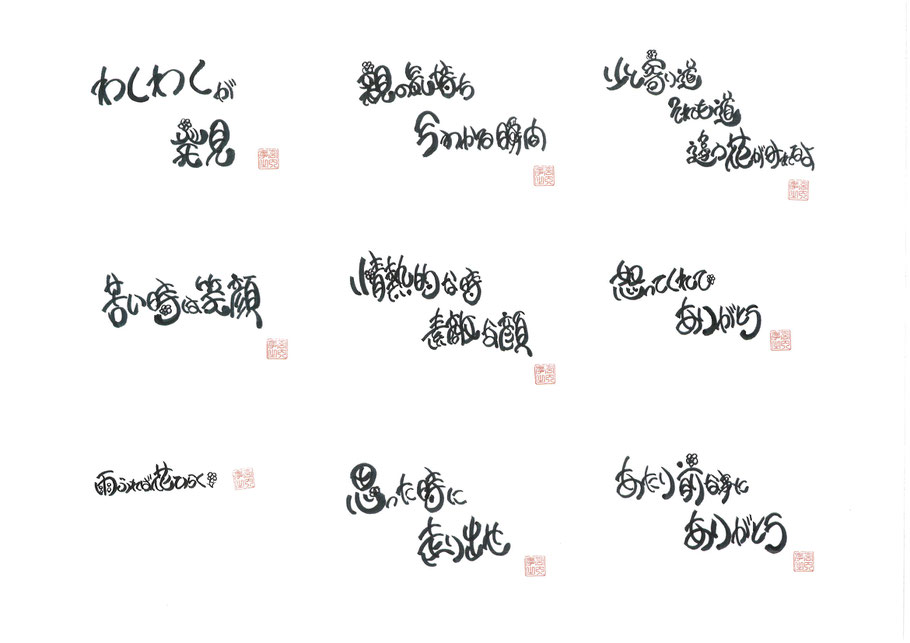 わしわしが
発見
親の気持ち
今わかる瞬間
少し寄り道
それも道
違う花がみれるさ
苦い時は笑顔
情熱的な時
素敵な顔
怒ってくれて
ありがとう
雨ふれば花ひらく
思った時に
走り出せ
あたり前な事に
ありがとう